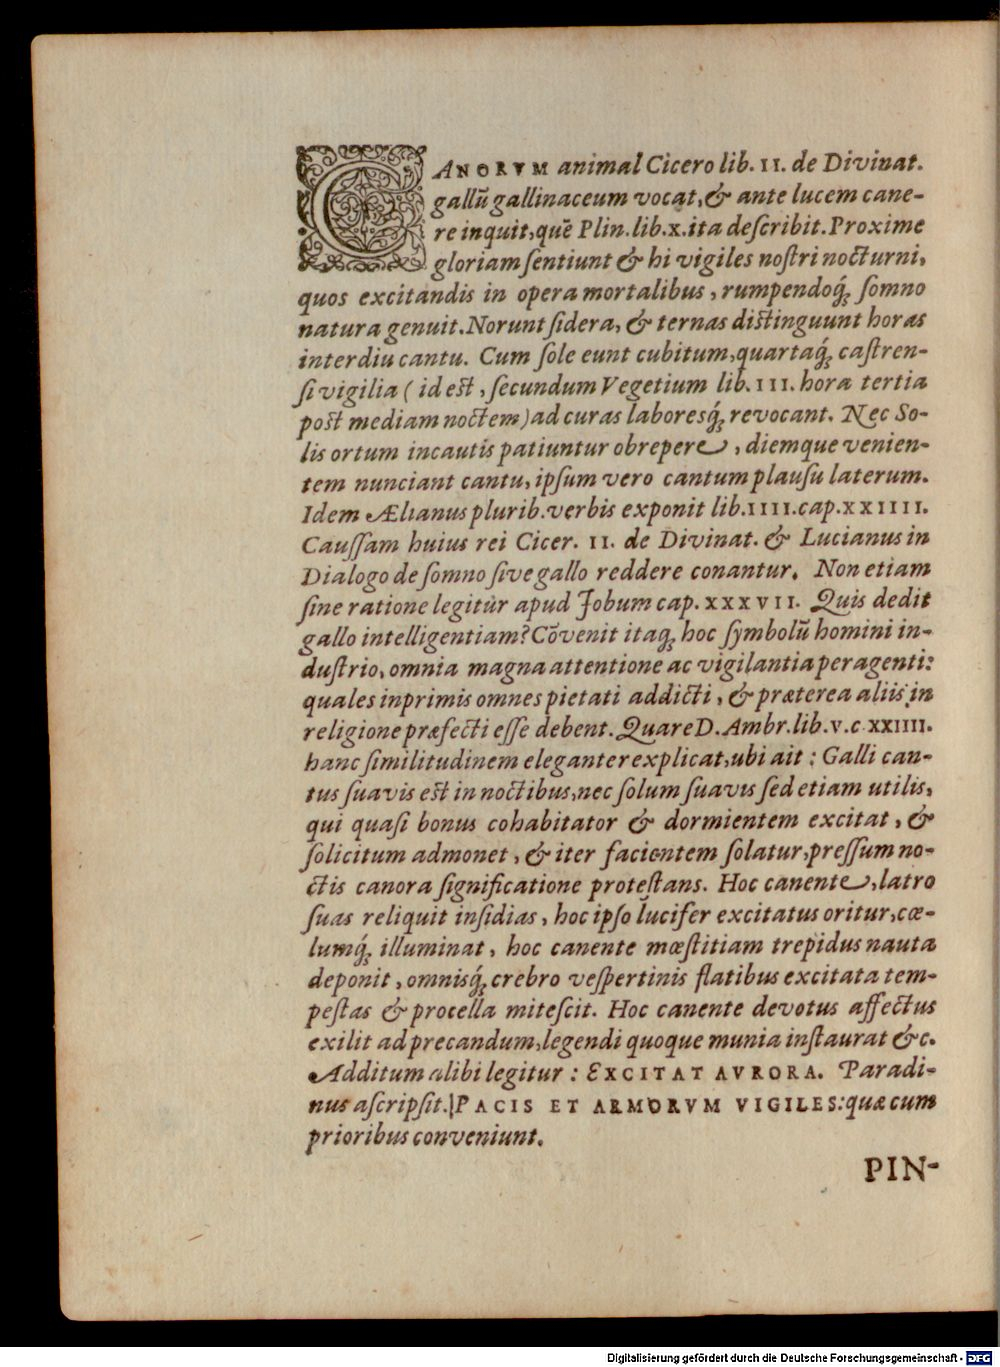 CANORVM animal Cicero lib. II. de Divinat.
gallū gallinaceum vocat, & ante lucem cane-
re inquit, quē Plin. lib. x. ita deſcribit. Proxime
gloriam ſentiunt & hi vigiles noſtri nocturni,
quos excitandis in opera mortalibus, rumpendoq́ꝫ ſomno
natura genuit. Norunt ſidera, & ternas diſtinguunt horas
interdiu cantu. Cum ſole eunt cubitum, quartaq́ꝫ caſtren-
ſi vigilia ( id eſt, ſecundum Vegetium lib. III. hora tertia
poſt mediam noctem) ad curas laboresq́ꝫ revocant. Nec So-
lis ortum incautis patiuntur obrepere, diemque venien-
tem nunciant cantu, ipſum vero cantum plauſu laterum.
Idem Ælianus plurib. verbis exponit lib. IIII. cap. XXIIII.
Cauſſam huius rei Cicer. II. de Divinat. & Lucianus in
Dialogo de ſomno ſive gallo reddere conantur. Non etiam
ſine ratione legitur apud Jobum cap. XXXVII. Quis dedit
gallo intelligentiam? Cōvenit itaqꝫ hoc ſymbolū homini in-
duſtrio, omnia magna attentione ac vigilantia peragenti:
quales inprimis omnes pietati addicti, & præterea aliis in
religione præfecti eſſe debent. Quare D. Ambr. lib. v. c. XXIIII.
hanc ſimilitudinem eleganter explicat, ubi ait : Galli can-
tus ſuavis eſt in noctibus, nec ſolum ſuavis ſed etiam utilis,
qui quaſi bonus cohabitator & dormientem excitat, &
ſolicitum admonet, & iter facientem ſolatur, preſſum no-
ctis canora ſignificatione proteſtans. Hoc canente, latro
ſuas reliquit inſidias, hoc ipſo lucifer excitatus oritur, cœ-
lumq́ꝫ illuminat, hoc canente mœſtitiam trepidus nauta
deponit, omnisq́ꝫ crebro veſpertinis flatibus excitata tem-
peſtas & procella miteſcit. Hoc canente devotus affectus
exilit ad precandum, legendi quoque munia inſtaurat &c.
Additum alibi legitur : EXCITAT AVRORA. Paradi-
nus aſcripſit. PACIS ET ARMORVM VIGILES: quæ cum
prioribus conveniunt.
PIN-
Digitalisierung gefördert durch die Deutsche Forschungsgemeinschaft - DFG